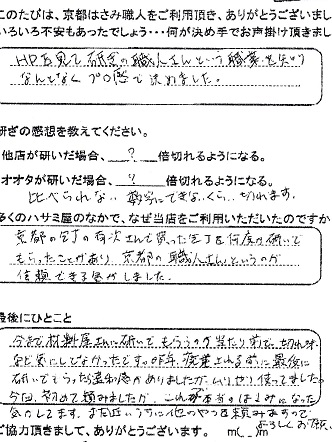 このたびは、京都はさみ職人をご利用頂き、ありがとうございまし
いろいろ不安もあったでしょう・・・何が決め手でお声掛け頂きまし
HPを見て研ぎの職人さんという職業を知り
なんとなくプロ感で決めました。
研ぎの感想を教えてください。
他店が研いだ場合、 ? 倍切れるようになる。
オオタが研いだ場合、 ? 倍切れるようになる。
比べられない 数字にできないくらい切れます。
多くのハサミ屋のなかで、なぜ当店をご利用いただいたのですか
京都の包丁の有次さんで買った包丁を何度か研いで
もらったことがあり、京都の職人さんというのが
信頼できる気がしました。
最後にひとこと
今まで材料屋さんに研いでもらうのが当たり前で、切れ味
など気にしてなかったです。昨年、廃業される前に最後に
研いでもらったら違和感がありましたが、ムリヤリ使ってました。
今回、初めて頼みましたが、これが本当のはさみになった
気がしてます。また近いうちに他のやつも頼みますので
よろしくお願い
ご協力頂きまして、ありがとうございます。 m(_ _)m